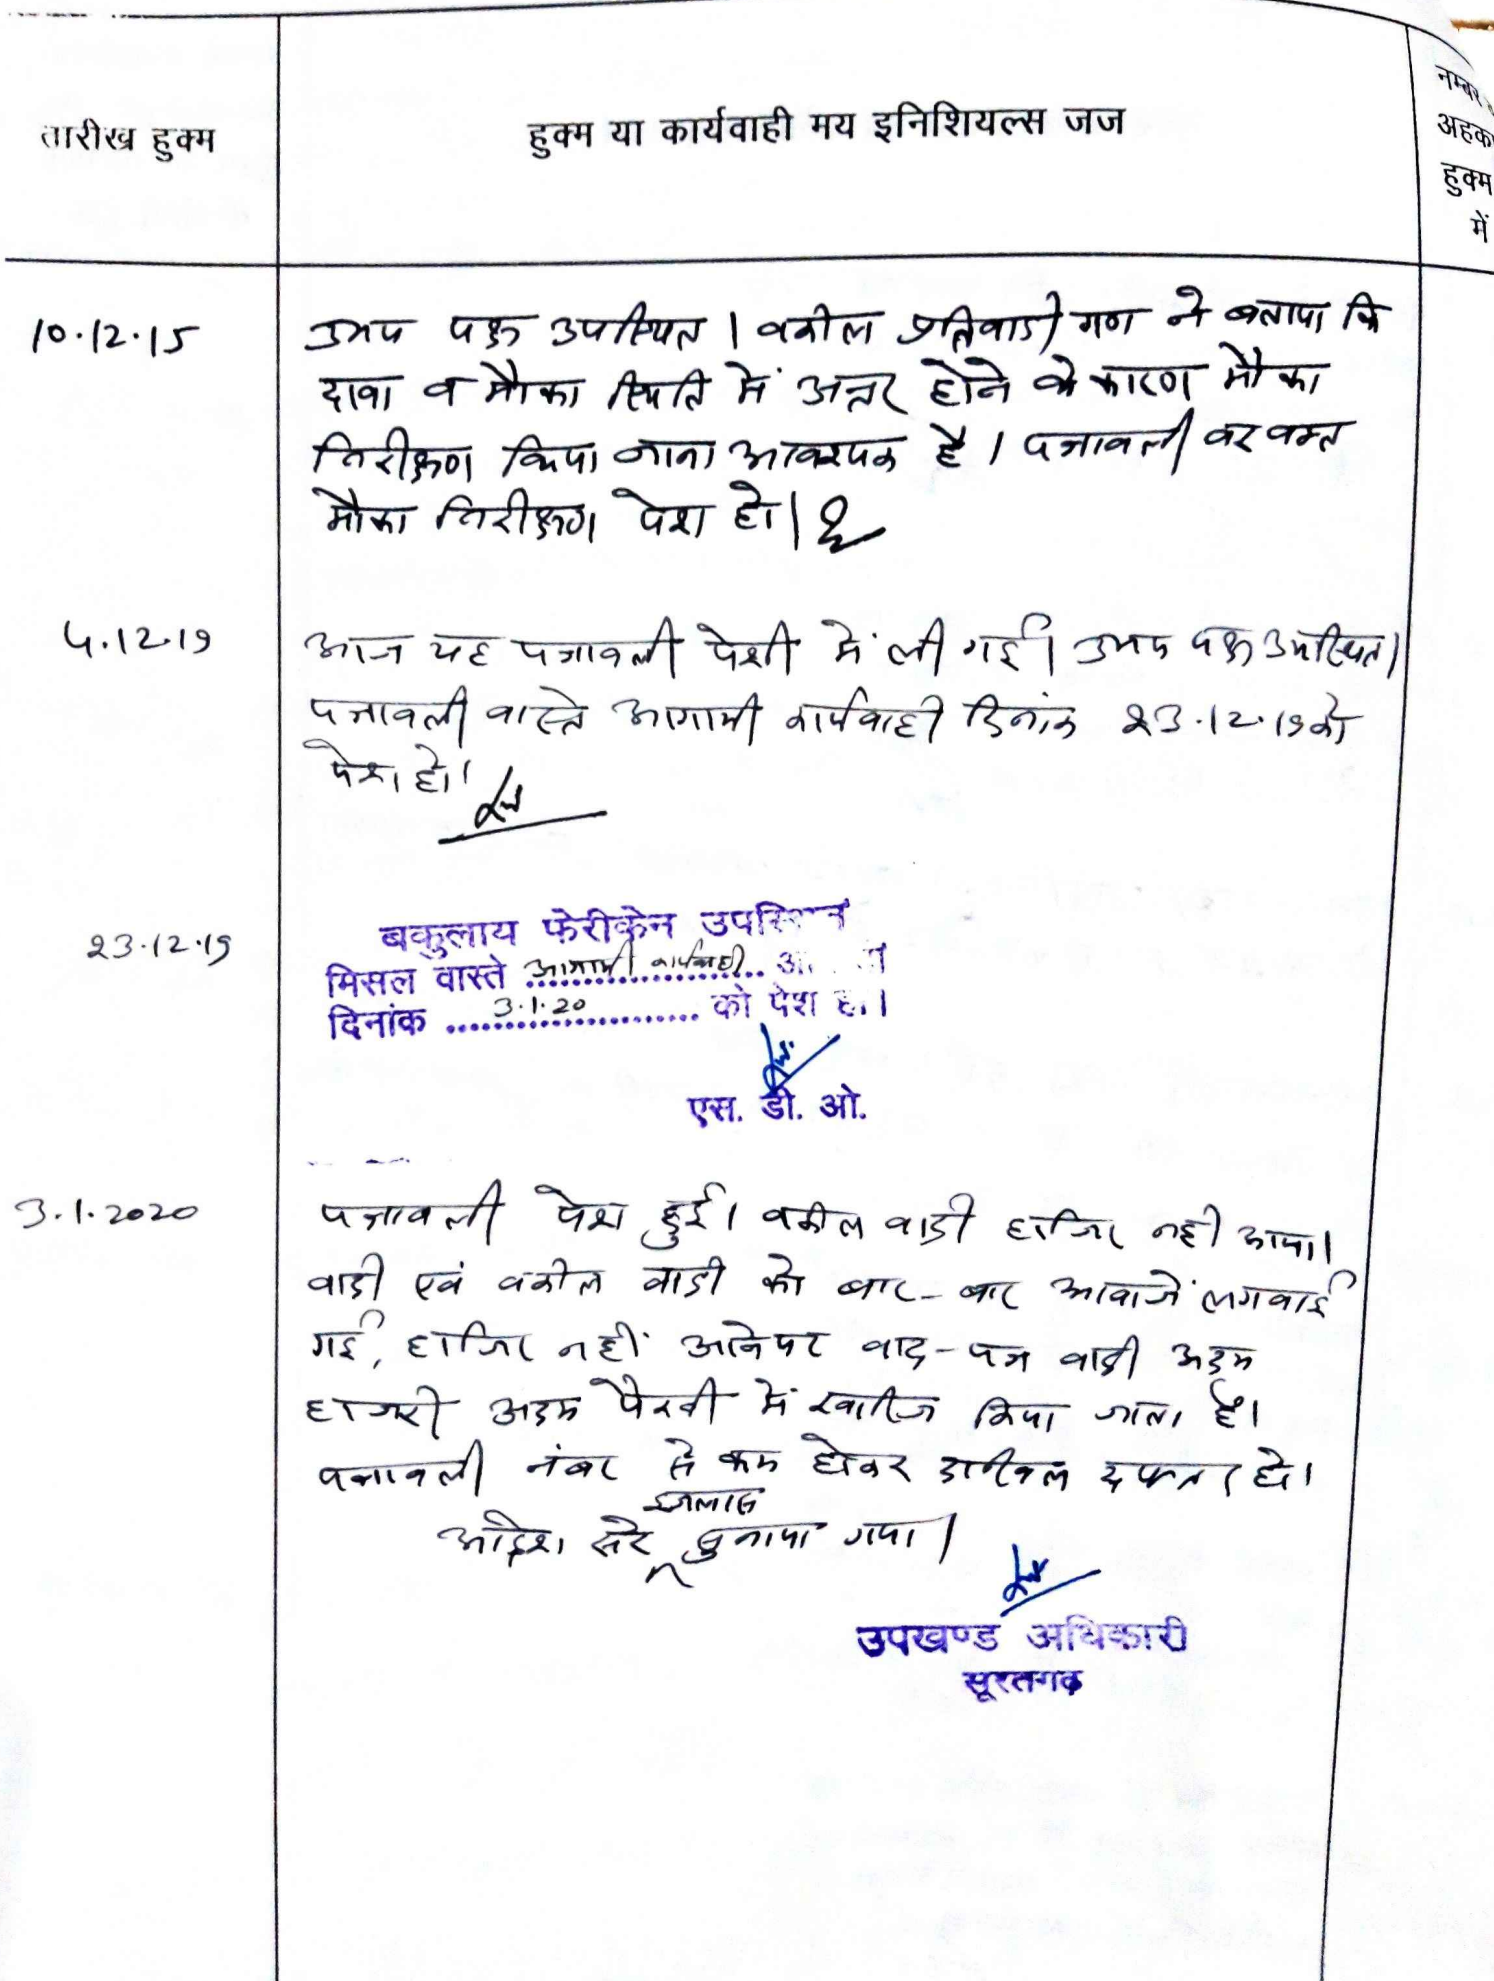 तारीख हुक्म
हुक्म या कार्यवाही मय इनिशियल्स जज
नम्बर
अहका
हुक्म
में
10.12.15
उभय पक्ष उपस्थित । वकील प्रतिवादी गण ने बताया कि
दावा व मौका स्थिति में अन्तर होने के कारण मौका
निरीक्षण किया जाना आवश्यक है । पत्रावली वर वक्त
मौका निरीक्षण पेश हो ।
4.12.19
आज यह पत्रावली पेशी में ली गई । उभय पक्ष उपस्थित ।
पत्रावली वास्ते आगामी कार्यवाही दिनांक 23.12.19 को
पेश हो ।
23.12.19
बकुलाय फेरीकेन उपस्थित
मिसल वास्ते आगामी कार्यवाही
दिनांक 3.1.20 को पेश हो ।
एस. डी. ओ.
3.1.2020
पत्रावली पेश हुई । वकील वादी हाजिर नहीं आया ।
वादी एवं वकील वादी को बार-बार आवाजें लगवाई
गई, हाजिर नहीं आने पर वाद-पत्र वादी अदम
हाजरी अदम पैरवी में खारिज किया जाता है ।
पत्रावली नंबर से कम होकर दाखिल दफ्तर हो ।
आदेश सरे इजलास सुनाया गया ।
उपखण्ड अधिकारी
सूरतगढ़